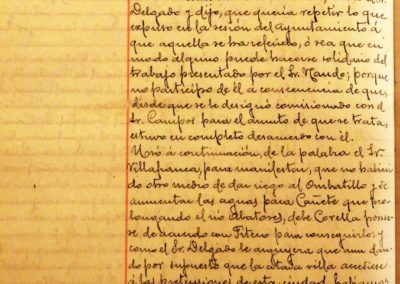 Delgado y dijo, que queria repetir lo que
expuso en la sesión del Ayuntamiento á
que aquella se ha referido, ó sea que en
modo alguno puede hacerse solidario del
trabajo presentado por el Sr. Nando; porque
no participó de él a consecuencia de que,
desde que se le designó comisionado con el
Sr. Campos para el asunto de que se trata,
estuvo en completo desacuerdo con él.
Usó á continuación, de la palabra el Sr.
Villafranca, para manifestar, que no habien
do otro medio de dar riego al Ombatillo y de
aumentar las aguas para Cañete que pro-
longando el rio Abatores, debe Corella poner-
se de acuerdo con Fitero para conseguirlo; y
como el Sr. Delgado le arguyera que aun dan
do por supuesto que la citada villa accediese
á las pretensiones de esta ciudad,